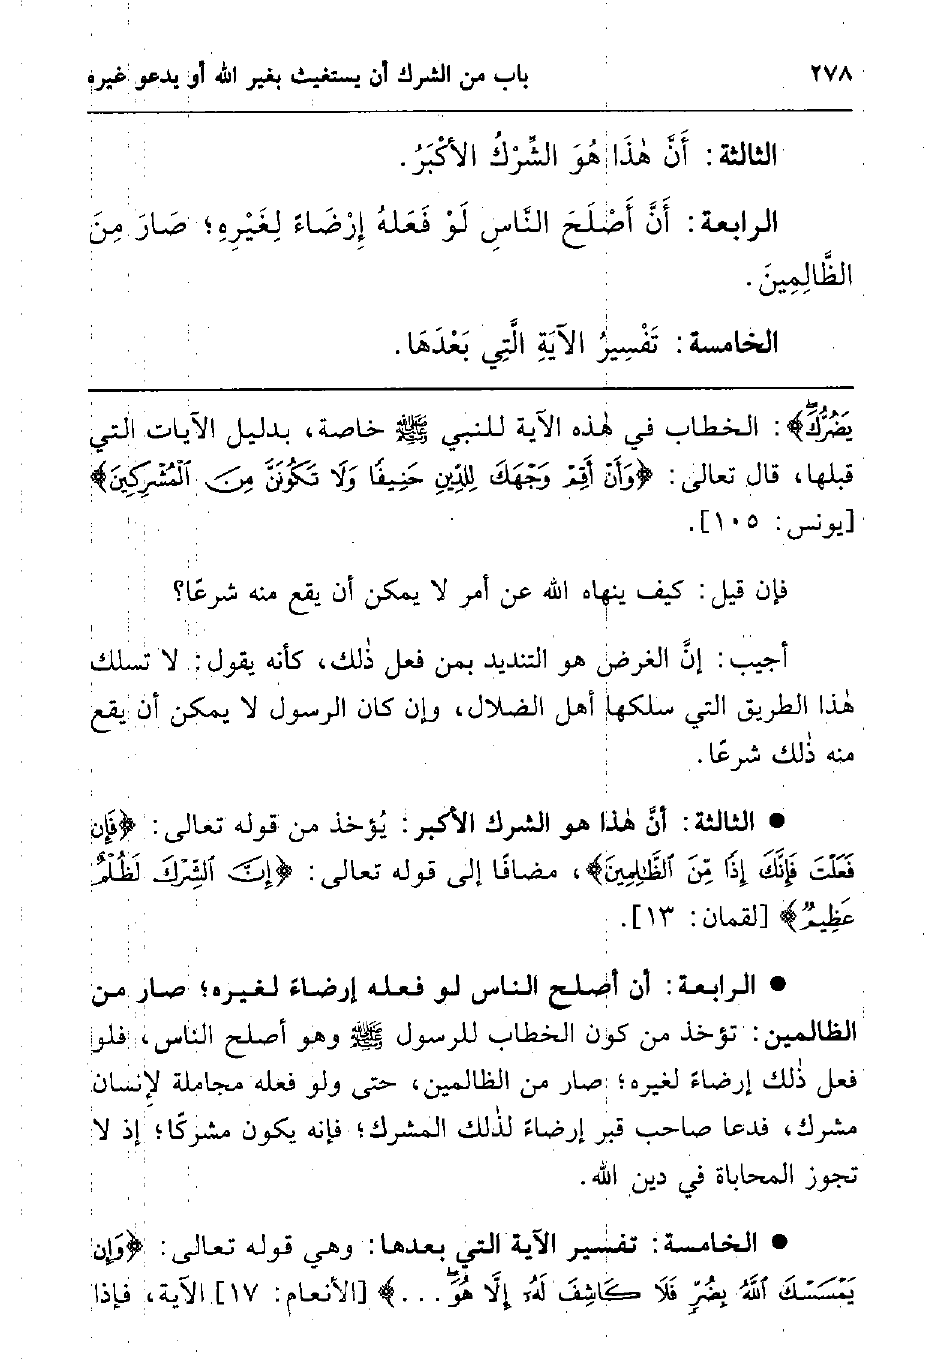 ٢٧٨ باب من الشرك أن يستغيث بغير الله أو يدعو غيره
الثالثة: أَنَّ هٰذَا هُوَ الشِّرْكُ الأَكْبَرُ.
الرابعة: أَنَّ أَصْلَحَ النَّاسِ لَوْ فَعَلَهُ إِرْضَاءً لِغَيْرِهِ؛ صَارَ مِنَ
الظَّالِمِينَ.
الخامسة: تَفْسِيرُ الآيَةِ الَّتِي بَعْدَهَا.
يَضُرُّكَ﴾: الخطاب في هٰذه الآية للنبي ﷺ خاصة، بدليل الآيات التي
قبلها، قال تعالى: ﴿وَأَنْ أَقِمْ وَجْهَكَ لِلدِّينِ حَنِيفًا وَلَا تَكُونَنَّ مِنَ ٱلْمُشْرِكِينَ﴾
[يونس: ١٠٥].
فإن قيل: كيف ينهاه الله عن أمر لا يمكن أن يقع منه شرعًا؟
أجيب: إنَّ الغرض هو التنديد بمن فعل ذٰلك، كأنه يقول: لا تسلك
هٰذا الطريق التي سلكها أهل الضلال، وإن كان الرسول لا يمكن أن يقع
منه ذٰلك شرعًا.
● الثالثة: أنَّ هٰذا هو الشرك الأكبر: يُؤخذ من قوله تعالى: ﴿فَإِن
فَعَلْتَ فَإِنَّكَ إِذًا مِّنَ ٱلظَّالِمِينَ﴾، مضافًا إلى قوله تعالى: ﴿إِنَّ ٱلشِّرْكَ لَظُلْمٌ
عَظِيمٌ﴾ [لقمان: ١٣].
● الرابعة: أن أصلح الناس لو فعله إرضاءً لغيره؛ صار من
الظالمين: تؤخذ من كون الخطاب للرسول ﷺ وهو أصلح الناس، فلو
فعل ذٰلك إرضاءً لغيره؛ صار من الظالمين، حتى ولو فعله مجاملة لإنسان
مشرك، فدعا صاحب قبر إرضاءً لذٰلك المشرك؛ فإنه يكون مشركًا؛ إذ لا
تجوز المحاباة في دين الله.
● الخامسة: تفسير الآية التي بعدها: وهي قوله تعالى: ﴿وَإِن
يَمْسَسْكَ ٱللَّهُ بِضُرٍّ فَلَا كَاشِفَ لَهُۥ إِلَّا هُوَ...﴾ [الأنعام: ١٧] الآية، فإذا